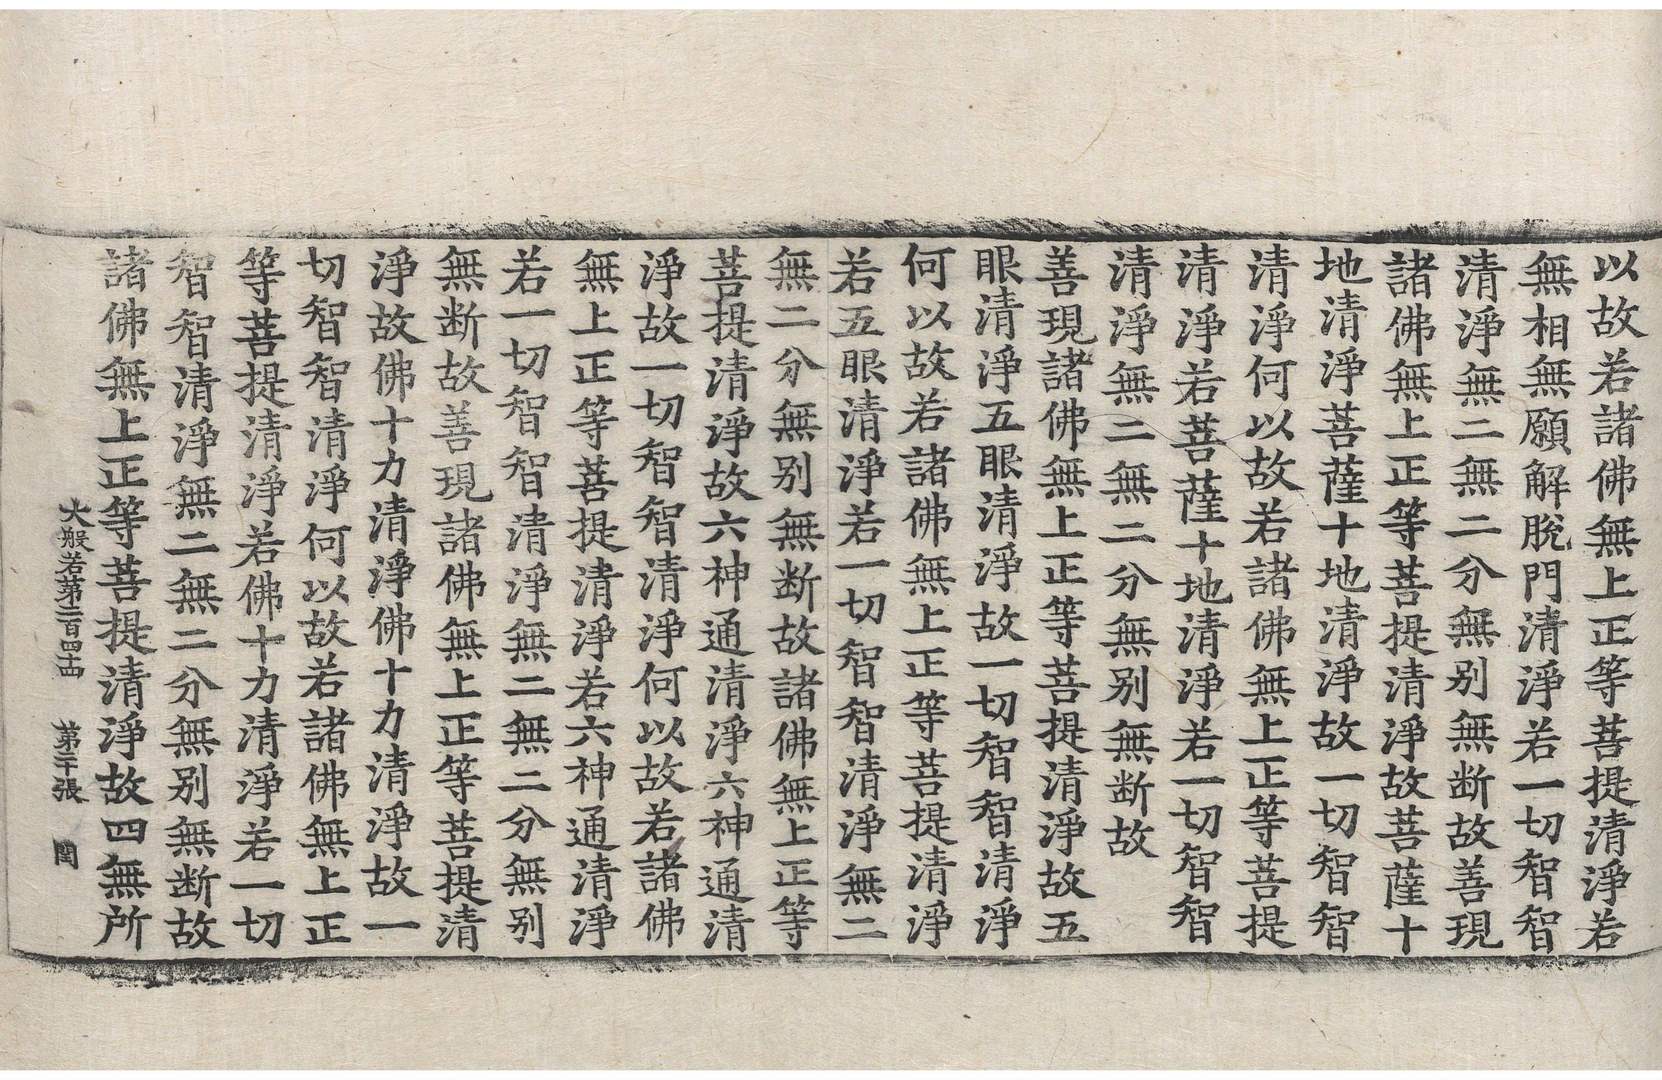 以故若諸佛無上正等菩提清淨若
無相無願解脫門清淨若一切智智
清淨無二無二分無别無断故善現
諸佛無上正等菩提清淨故菩薩十
地清淨菩薩十地清淨故一切智智
清淨何以故若諸佛無上正等菩提
清淨若菩薩十地清淨若一切智智
清淨無二無二分無别無断故
善現諸佛無上正等菩提清淨故五
眼清淨五眼清淨故一切智智清淨
何以故若諸佛無上正等菩提清淨
若五眼清淨若一切智智清淨無二
無二分無别無断故諸佛無上正等
菩提清淨故六神通清淨六神通清
淨故一切智智清淨何以故若諸佛
無上正等菩提清淨若六神通清淨
若一切智智清淨無二無二分無别
無断故善現諸佛無上正等菩提清
淨故佛十力清淨佛十力清淨故一
切智智清淨何以故若諸佛無上正
等菩提清淨若佛十力清淨若一切
智智清淨無二無二分無别無断故
諸佛無上正等菩提清淨故四無所
大般若第二百四十 第二十張 閏